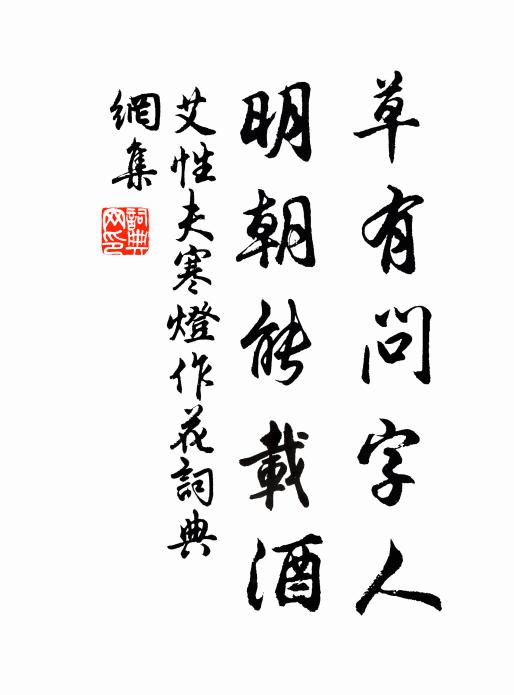 草有問字人
明朝能載酒
艾性夫寒燈作花詞典
網集
詞典
网印